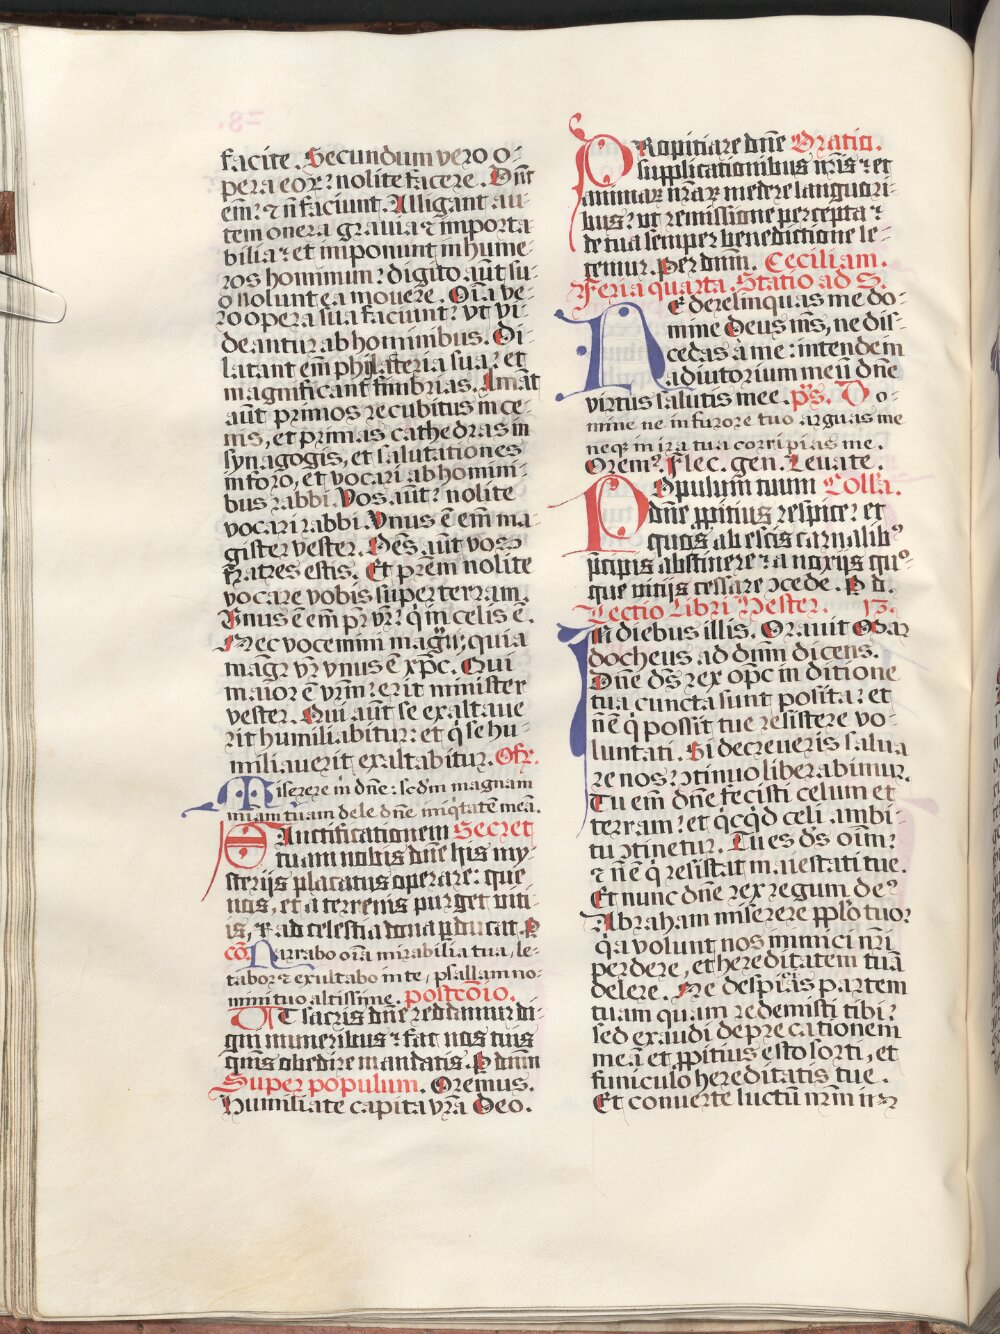 facite. Secundum vero o-
pera eoꝝ: nolite facere. Dnt
em: ⁊ n̄ faciunt. Alligant au-
tem onera grauia ⁊ importa
bilia: et imponunt in hume-
ros hominum: digito aūt su-
o nolunt ea mouere. Oīa ve-
ro opera sua faciunt: vt vi-
deantur ab hominibus. Di-
latant em̄ philateria sua: et
magnificant fimbrias. Amāt
aūt primos recubitus in ce-
nis, et primas cathedras in
synagogis, et salutationes
in foro, et vocari ab homini-
bus rabbi. Vos aūt: nolite
vocari rabbi. Vnus ē em̄ ma-
gister vester. Oēs aūt vos
fratres estis. Et prēm nolite
vocare vobis super terram.
Vnus ē em̄ pr̄ vr̄: q̇ in celis ē.
Nec vocemini magr̄i; quia
magr̄ vr̄ vnus ē xp̄c. Qui
maior ē vrm̄: erit minister
vester. Qui aūt se exaltaue
rit humiliabitur: et q̇ se hu-
miliauerit exaltabitur. Ofr̄.
Miserere m̄ dn̄e: scdm magnam
miam tuam dele dn̄e iniq̇tatē meā.
Sanctificationem Secret
tuam nobis dn̄e his my-
sterijs placatus operare: que
nos, et a terrenis purget viti-
is, ⁊ ad celestia dona ꝑducat. P
cō. Narrabo oīa mirabilia tua, le-
tabor ⁊ exultabo in te, psallam no-
mini tuo altissime. postcōio.
UT sacris dn̄e reddamur di-
gni muneribus: fac nos tuis
qm̄s obedire mandatis. P dn̄m
Super populum. Oremus.
Humiliate capita vr̄a Deo.
PRopitiare dn̄e Oratio.
supplicationibus nr̄is: et
animaꝝ nr̄aꝝ medere languori-
bus: vt remissione percepta:
de tua semper benedictione le-
temur. Per dnm̄. Ceciliam.
Feria quarta. Statio ad S.
NE derelinquas me do-
mine Deus ms̄, ne dis-
cedas a me: intende in
adiutorium meū dn̄e
virtus salutis mee. p̄s. Do-
mine ne in furore tuo arguas me
neqꝫ in ira tua corripias me.
Oremꝰ. Flec. gen. Leuate.
POpulum tuum Colla.
dn̄e ꝓpitius respice: et
quos ab escis carnalibꝰ
p̄cipis abstinere: a noxijs quoꝰ
que vitijs cessare ↄcede. P d.
Lectio Libri Hester. 13.
IN diebus illis. Orauit Mar
docheus ad dnm̄ dicens.
Dn̄e ds̄ rex op̄c in ditione
tua cuncta sunt posita: et
nē ē q̇ possit tue resistere vo-
luntati. Si decreueris salua
re nos: ↄtinuo liberabimur.
Tu em̄ dn̄e fecisti celum et
terram: et q̇cq̇d celi ambi-
tu ↄtinetur. Tu es ds̄ oīm:
⁊ nē ē q̇ resistat maiestati tue.
Et nunc dn̄e rex regum deꝰ
Abraham miserere pplo tuo:
q̇a volunt nos inimici nr̄i
perdere, et hereditatem tuā
delere. Ne despicias partem
tuam quam redemisti tibi:
sed exaudi deprecationem
meā et ꝓpitius esto sorti, et
funiculo hereditatis tue.
Et conuerte luctū nrm̄ in